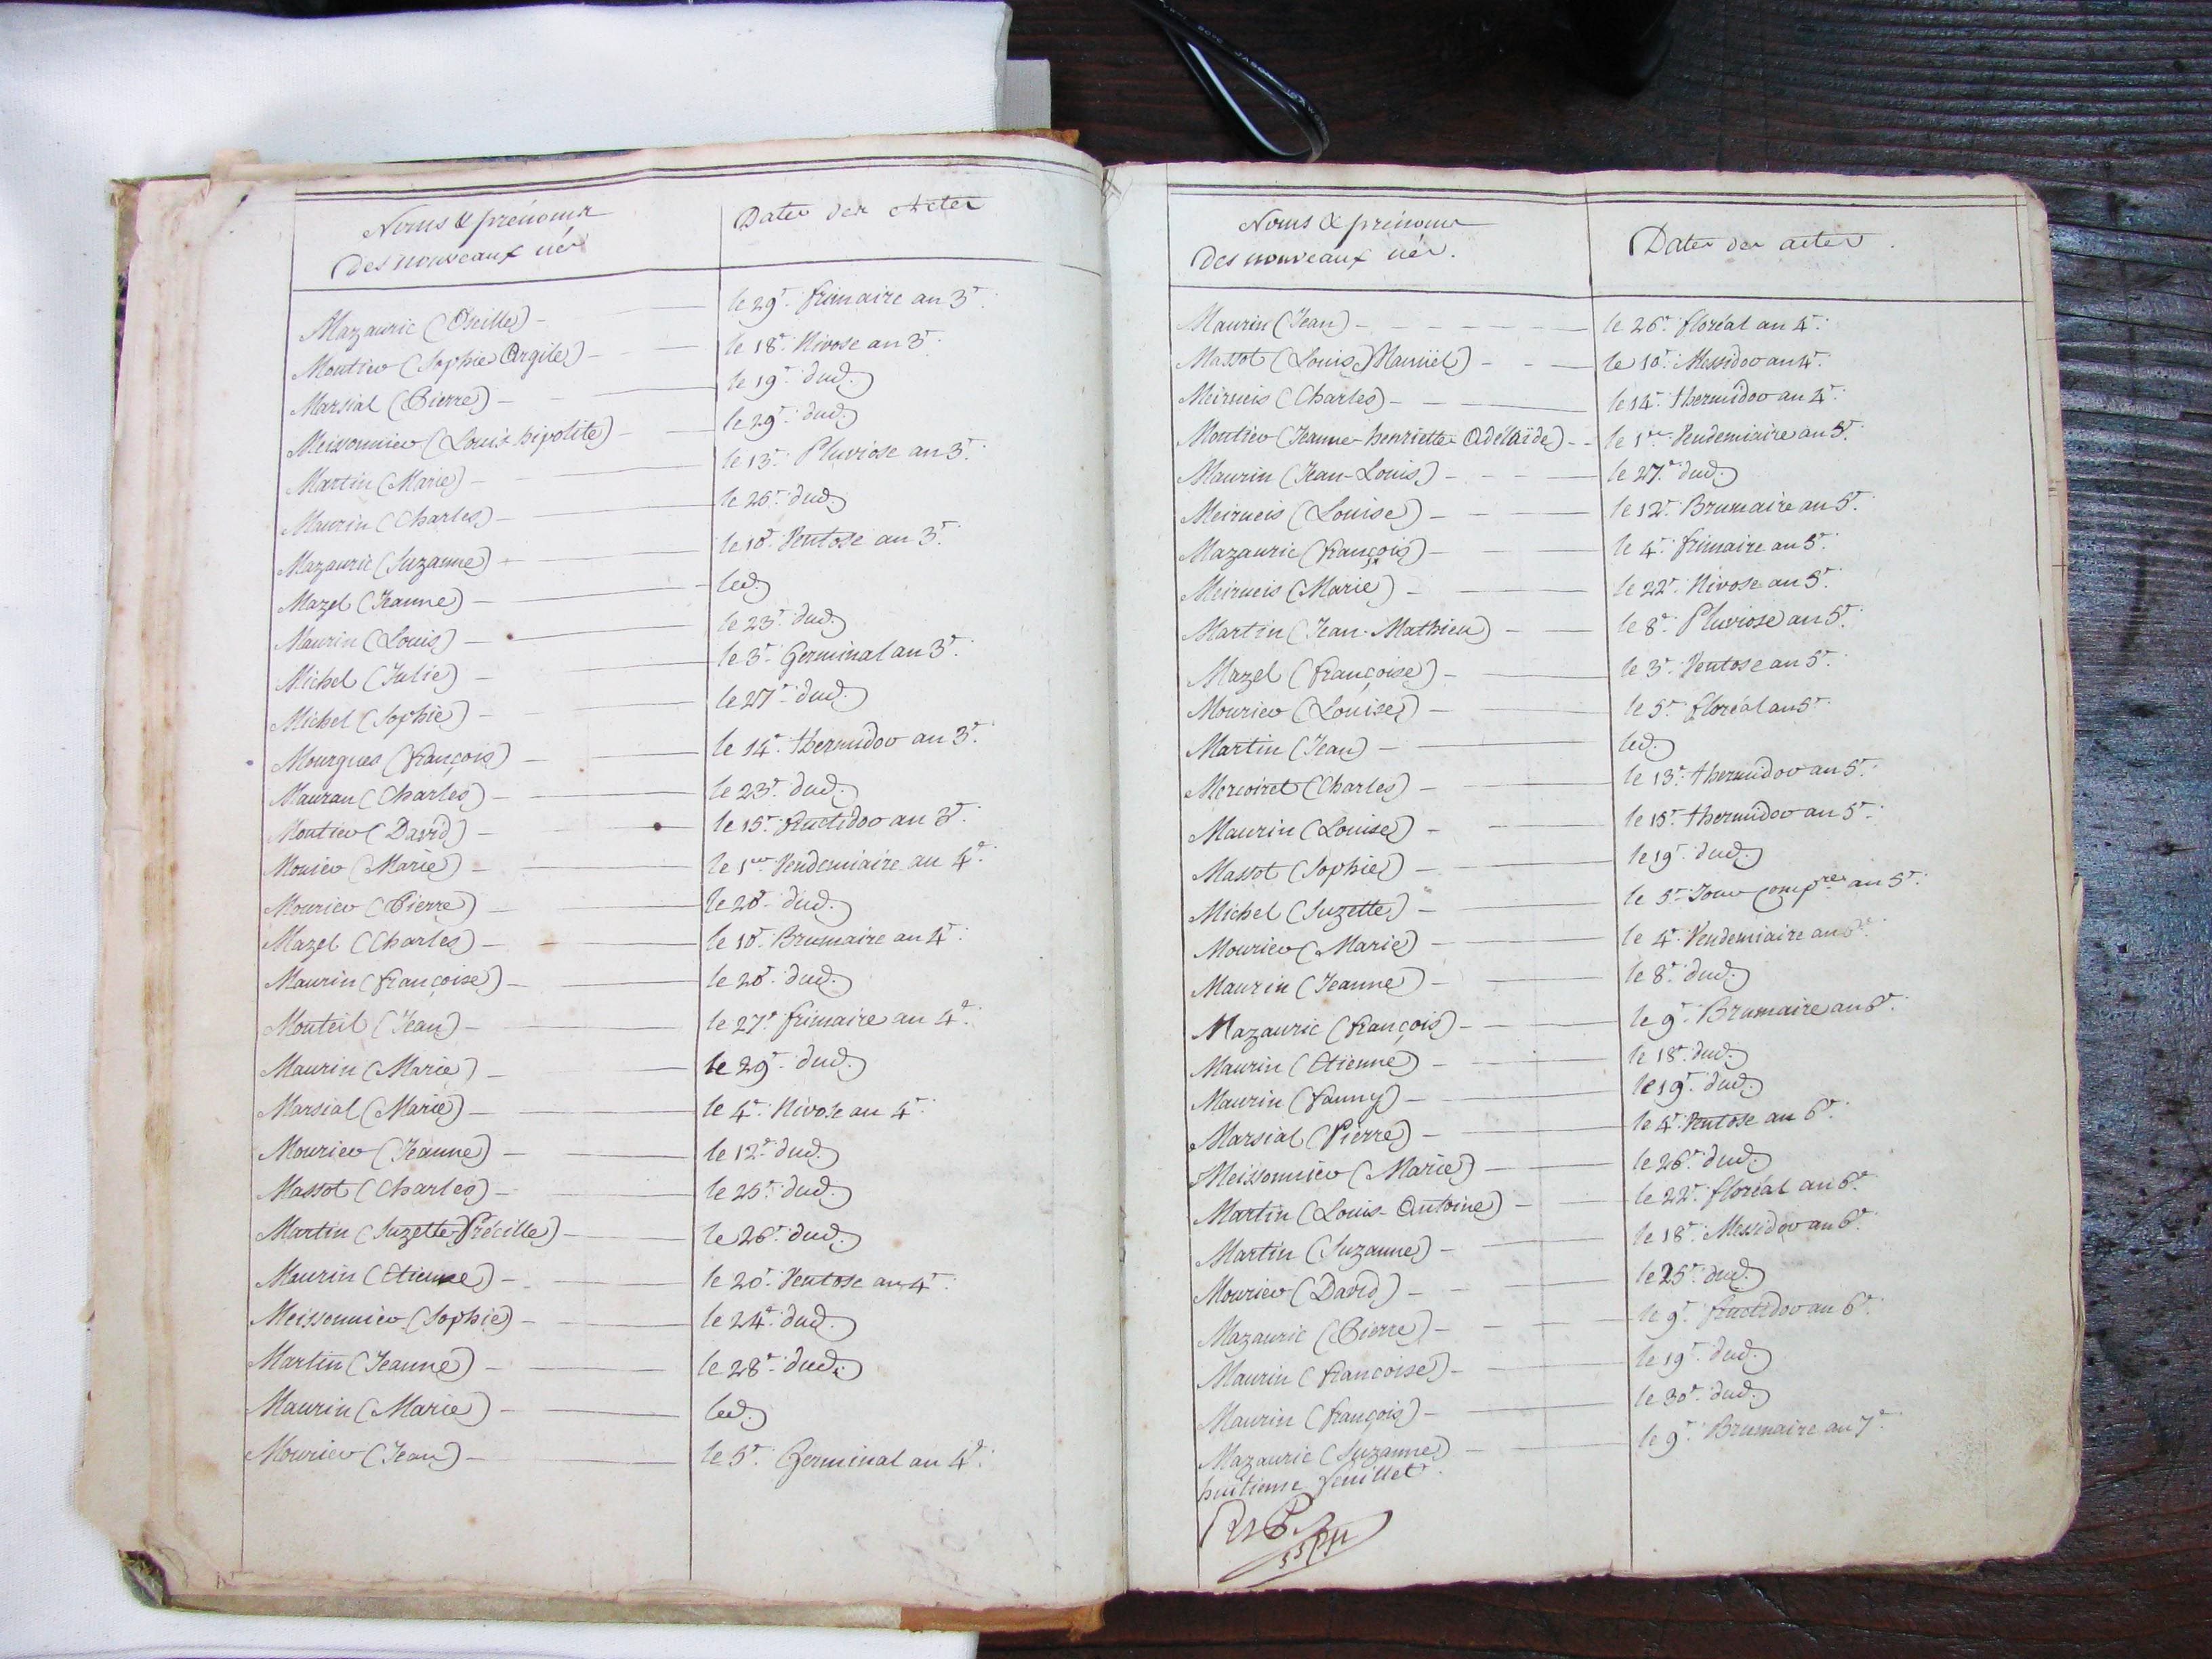 Noms & prénoms
des nouveaux nés
Dates des Actes
Mazauric (Oseille) - le 29e. frimaire an 3e.
Moutier (Sophie Argile) - le 18e. Nivose an 3e.
Marsial (Pierre) - le 19e. dud.
Meissonnier (Louis-hipolite) - le 29e. dud.
Martin (Marie) - le 13e. Pluviose an 3e.
Maurin (Charles) - le 26e. dud.
Mazauric (Suzanne) - le 10e. Ventose an 3e.
Mazel (Jeanne) - led.
Maurin (Louis) - le 23e. dud.
Michel (Julie) - le 3e. Germinal an 3e.
Michel (Sophie) - le 27e. dud.
Mourgues (françois) - le 14e. thermidor an 3e.
Mauran (Charles) - le 23e. dud.
Moutier (David) - le 15e. fructidor an 3e.
Mourier (Marie) - le 1er Vendemiaire an 4e.
Mourier (Pierre) - le 20e. dud.
Mazel (Charles) - le 10e. Brumaire an 4e.
Maurin (françoise) - le 20e. dud.
Monteil (Jean) - le 27e. frimaire an 4e.
Maurin (Marie) - le 29e. dud.
Marsial (Marie) - le 4e. Nivose an 4e.
Mourier (Jeanne) - le 12e. dud.
Massot (Charles) - le 25e. dud.
Martin (Suzette Précille) - le 26e. dud.
Maurin (Etienne) - le 20e. Ventose an 4e.
Meissonnier (Sophie) - le 24e. dud.
Martin (Jeanne) - le 28e. dud.
Maurin (Marie) - led.
Mourier (Jean) - le 5e. Germinal an 4e.
Noms & prénoms
des nouveaux nés.
Dates des actes.
Maurin (Jean) - le 26e. floréal an 4e.
Massot (Louis) Manuël) - le 10e. Messidor an 4e.
Meirueis (Charles) - le 14e. thermidor an 4e.
Moutier (Jeanne-henriette-Adélaïde) - le 1er Vendemiaire an 5e.
Maurin (Jean-Louis) - le 27e. dud.
Meirueis (Louise) - le 12e. Brumaire an 5e.
Mazauric (françois) - le 4e. frimaire an 5e.
Meirueis (Marie) - le 22e. Nivose an 5e.
Martin (Jean-Mathieu) - le 8e. Pluviose an 5e.
Mazel (françoise) - le 3e. Ventose an 5e.
Mourier (Louise) - le 5e. floréal an 5e.
Martin (Jean) - led.
Mercoiret (Charles) - le 13e. thermidor an 5e.
Maurin (Louise) - le 15e. thermidor an 5e.
Massot (Sophie) - le 19e. dud.
Michel (Suzette) - le 5e. Jour Compres an 5e.
Mourier (Marie) - le 4e. Vendemiaire an 6e.
Maurin (Jeanne) - le 8e. dud.
Mazauric (françois) - le 9e. Brumaire an 6e.
Maurin (Etienne) - le 18e. dud.
Maurin (fanny) - le 19e. dud.
Marsial (Pierre) - le 4e. Ventose an 6e.
Meissonnier (Marie) - le 26e. dud.
Martin (Louis-Antoine) - le 22e. floréal an 6e.
Martin (Suzanne) - le 18e. Messidor an 6e.
Mourier (David) - le 25e. dud.
Mazauric (Pierre) - le 9e. fructidor an 6e.
Maurin (françoise) - le 19e. dud.
Maurin (françois) - le 30e. dud.
Mazauric (Suzanne) - le 9e. Brumaire an 7e.
huitieme feuillet.